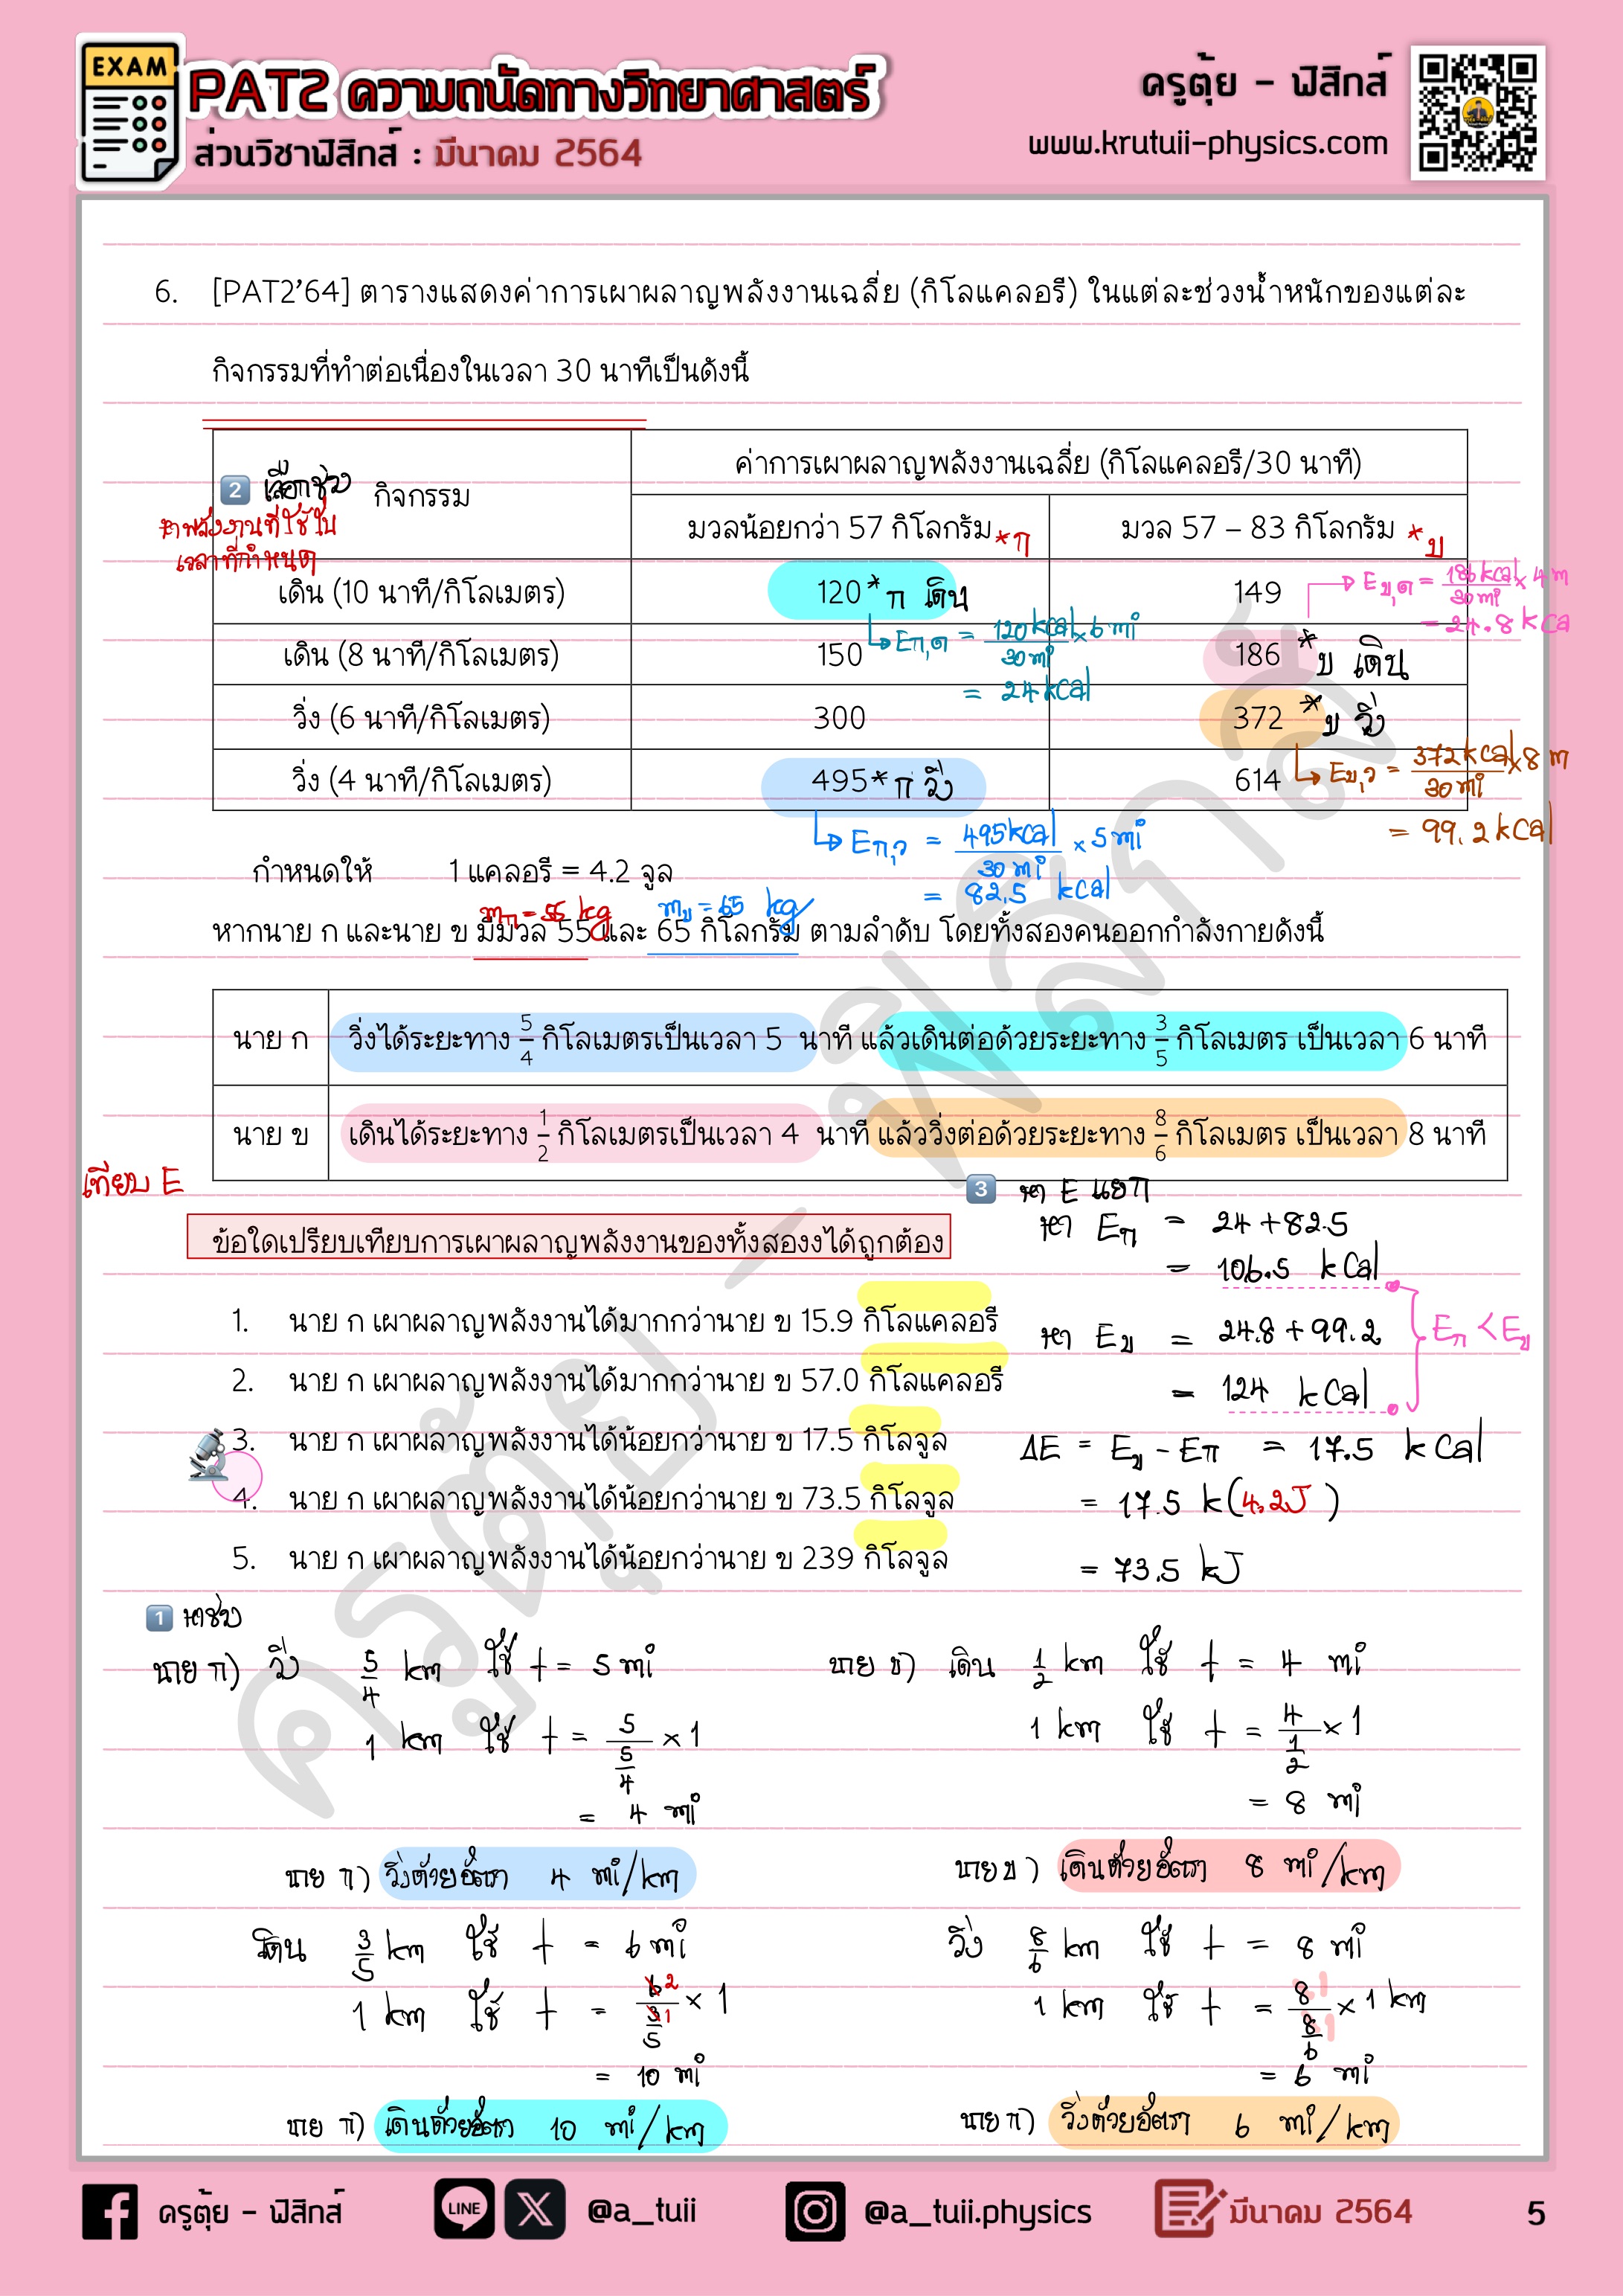 EXAM
PAT2 ความถนัดทางวิทยาศาสตร์
ส่วนวิชาฟิสิกส์ : มีนาคม 2564
ครูตุ้ย - ฟิสิกส์
www.krutuii-physics.com
6. [PAT2'64] ตารางแสดงค่าการเผาผลาญพลังงานเฉลี่ย (กิโลแคลอรี) ในแต่ละช่วงน้ำหนักของแต่ละ
กิจกรรมที่ทำต่อเนื่องในเวลา 30 นาทีเป็นดังนี้
2 เลือกช่วง
กิจกรรม
หาพลังงานที่ใช้ใน
เวลาที่กำหนด
ค่าการเผาผลาญพลังงานเฉลี่ย (กิโลแคลอรี/30 นาที)
มวลน้อยกว่า 57 กิโลกรัม *ก
มวล 57 – 83 กิโลกรัม *ข
เดิน (10 นาที/กิโลเมตร) 120 * ก เดิน 149
E ก,ด = 120 kcal / 30 mi × 6 mi
= 24 kcal
E ข,ด = 186 kcal / 30 mi × 4 m
= 24.8 kca
เดิน (8 นาที/กิโลเมตร) 150 186 * ข เดิน
วิ่ง (6 นาที/กิโลเมตร) 300 372 * ข วิ่ง
วิ่ง (4 นาที/กิโลเมตร) 495 * ก วิ่ง 614
E ข,ว = 372 kcal / 30 mi × 8 m
= 99.2 kcal
E ก,ว = 495 kcal / 30 mi × 5 mi
= 82.5 kcal
กำหนดให้ 1 แคลอรี = 4.2 จูล
m ก = 55 kg m ข = 65 kg
หากนาย ก และนาย ข มีมวล 55 และ 65 กิโลกรัม ตามลำดับ โดยทั้งสองคนออกกำลังกายดังนี้
นาย ก วิ่งได้ระยะทาง 5/4 กิโลเมตรเป็นเวลา 5 นาที แล้วเดินต่อด้วยระยะทาง 3/5 กิโลเมตร เป็นเวลา 6 นาที
นาย ข เดินได้ระยะทาง 1/2 กิโลเมตรเป็นเวลา 4 นาที แล้ววิ่งต่อด้วยระยะทาง 8/6 กิโลเมตร เป็นเวลา 8 นาที
เทียบ E
ข้อใดเปรียบเทียบการเผาผลาญพลังงานของทั้งสองงได้ถูกต้อง
3 หา E แยก
หา E ก = 24 + 82.5
= 106.5 kcal
หา E ข = 24.8 + 99.2
= 124 kcal
E ก < E ข
ΔE = E ข - E ก = 17.5 kcal
= 17.5 k(4.2J)
= 73.5 kJ
1. นาย ก เผาผลาญพลังงานได้มากกว่านาย ข 15.9 กิโลแคลอรี
2. นาย ก เผาผลาญพลังงานได้มากกว่านาย ข 57.0 กิโลแคลอรี
3. นาย ก เผาผลาญพลังงานได้น้อยกว่านาย ข 17.5 กิโลจูล
4. นาย ก เผาผลาญพลังงานได้น้อยกว่านาย ข 73.5 กิโลจูล
5. นาย ก เผาผลาญพลังงานได้น้อยกว่านาย ข 239 กิโลจูล
1 หาช่วง
นาย ก) วิ่ง 5/4 km ใช้ t = 5 mi
1 km ใช้ t = 5 / (5/4) × 1
= 4 mi
นาย ก) วิ่งด้วยอัตรา 4 mi/km
เดิน 3/5 km ใช้ t = 6 mi
1 km ใช้ t = 6 2 / (3 1/5) × 1
= 10 mi
นาย ก) เดินด้วยอัตรา 10 mi/km
นาย ข) เดิน 1/2 km ใช้ t = 4 mi
1 km ใช้ t = 4 / (1/2) × 1
= 8 mi
นาย ข) เดินด้วยอัตรา 8 mi/km
วิ่ง 8/6 km ใช้ t = 8 mi
1 km ใช้ t = 8 1 / (8 1/6) × 1 km
= 6 mi
นาย ก) วิ่งด้วยอัตรา 6 mi/km
ครูตุ้ย - ฟิสิกส์
ครูตุ้ย - ฟิสิกส์
LINE
@a_tuii
@a_tuii.physics
มีนาคม 2564
5